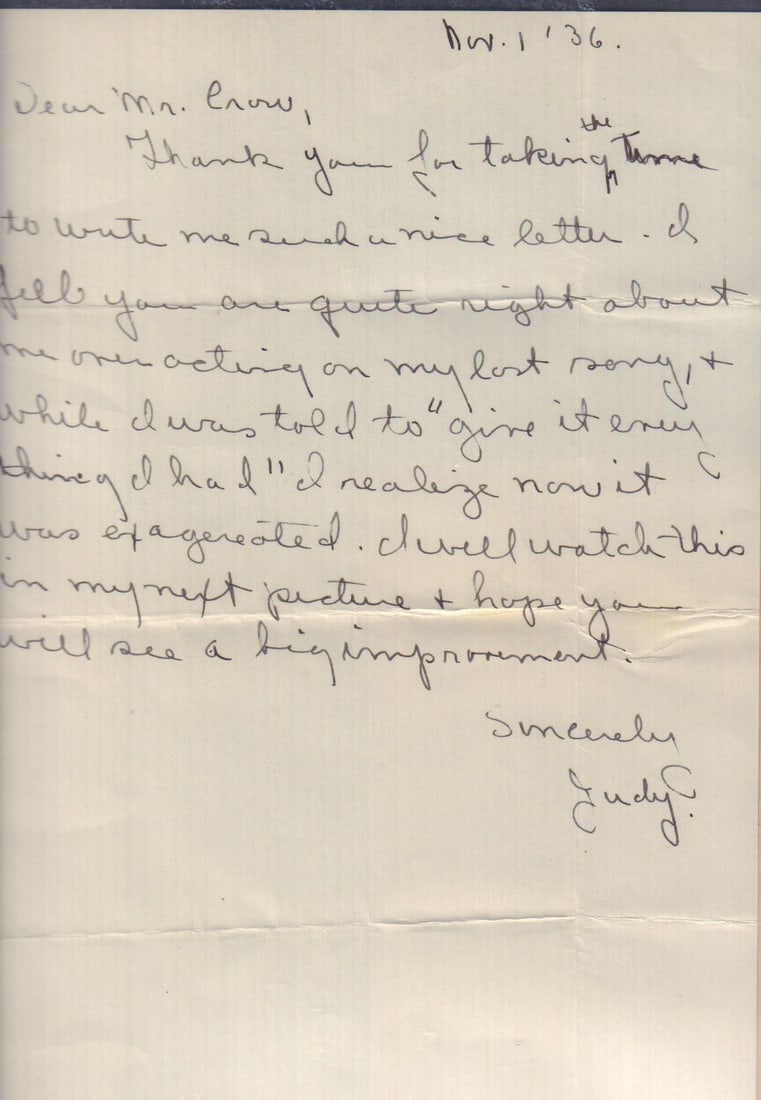 Nov. 1 '36.
Dear Mr. Crow,
the
Thank you for taking time
to write me such a nice letter. I
feel you are quite right about
me over acting on my last song, +
while I was told to "give it every
thing I had" I realize now it
was exagereated. I will watch this
in my next picture + hope you
will see a big improvement.
Sincerely
Judy.